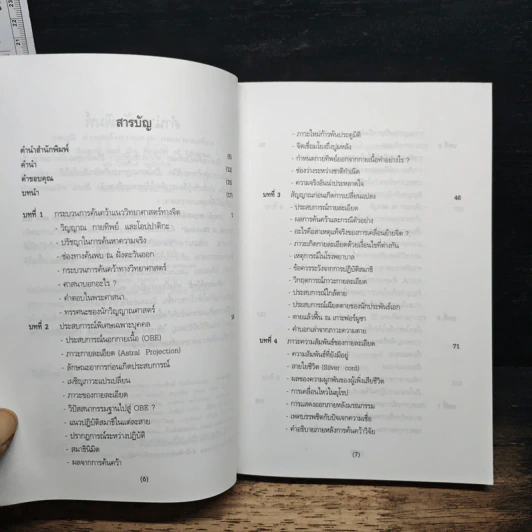 สารบัญ
คำนำสำนักพิมพ์ (5)
คำนำ
คำขอบคุณ
บทนำ
บทที่ 1 กระบวนการค้นคว้าแนววิทยาศาสตร์ทางจิต 1
- วิญญาณ กายทิพย์ และโอปปาติกะ
- ปรัชญาในการค้นหาความจริง
- ช่องทางค้นพบ ณ ฝั่งตะวันออก
- กระบวนการค้นคว้าทางวิทยาศาสตร์
- ศาสนาบอกอะไร ?
- คำตอบในพระศาสนา
- ทรรศนะของนักวิญญาณศาสตร์
บทที่ 2 ประสบการณ์พิเศษเฉพาะบุคคล
- ประสบการณ์นอกกายเนื้อ (OBE)
- ภาวะกายละเอียด (Astral Projection)
- ลักษณะอาการก่อนเกิดประสบการณ์
- เผชิญภาวะแปรเปลี่ยน
- ภาวะของกายละเอียด
- วิปัสสนากรรมฐานไปสู่ OBE ?
- แนวปฏิบัติสมาธิในแต่ละสาย
- ปรากฏการณ์ระหว่างปฏิบัติ
- สมาธินิมิต
- ผลจากการค้นคว้า
(6)
- ภาวะใหม่ก้าวพ้นประตูมิติ
- จิตเชื่อมโยงถึงปูมหลัง
- กำหนดกายทิพย์ออกจากกายเนื้ออย่างไร ?
- ช่องว่างระหว่างชาติกำเนิด
- ความจริงอันน่าประหลาดใจ
บทที่ 3 สัญญาณก่อนเกิดการเปลี่ยนแปลง 46
- ประสบการณ์กายละเอียด
- ผลการค้นคว้าและกรณีตัวอย่าง
- อะไรคือสาเหตุแท้จริงของการเคลื่อนย้ายจิต ?
- ภาวะเกิดกายละเอียดด้วยเงื่อนไขที่ต่างกัน
- เหตุการณ์ในโรงพยาบาล
- ข้อควรระวังจากการปฏิบัติสมาธิ
- วิกฤตการณ์ภาวะกายละเอียด
- ประสบการณ์ใกล้ตาย
- ประสบการณ์เฉียดตายของนักประพันธ์เอก
- ตายแล้วฟื้น ณ เกาะฟอร์มูซา
- คำบอกเล่าจากภาวะความตาย
บทที่ 4 ภาวะความสัมพันธ์ของกายละเอียด 71
- ความสัมพันธ์ที่ยังมีอยู่
- สายใยชีวิต (Silver cord)
- ผลของความผูกพันของผู้เพิ่งเสียชีวิต
- การเคลื่อนไหวในยุโรป
- การแสดงออกภายหลังมรณกรรม
- เหตบรรพชิตกับปัจเจกความเชื่อ
- คำอธิบายภายหลังการค้นคว้าวิจัย
(7)